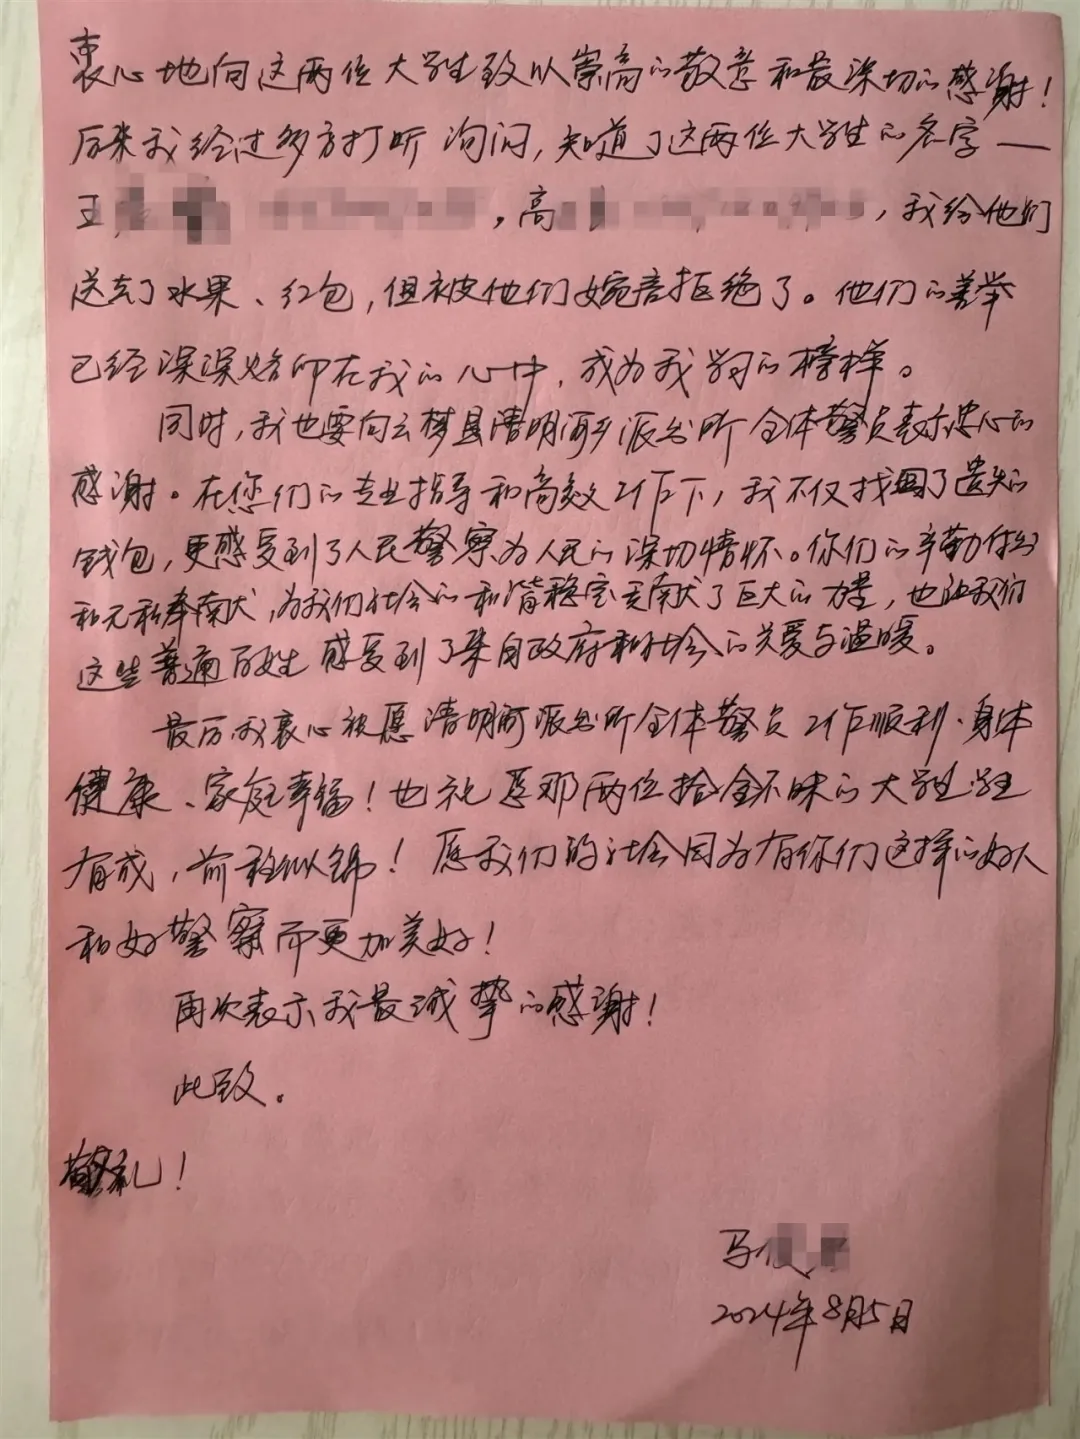 衷心地向这两位大学生致以崇高的敬意和最深切的感谢！
后来我经过多方打听询问，知道了这两位大学生的名字——
王，高，我给他们
送去了水果、红包，但被他们婉言拒绝了。他们的善举
已经深深烙印在我的心中，成为我学习的榜样。
同时，我也要向云梦县清明河乡派出所全体警员表示忠心的
感谢。在您们的专业指导和高效工作下，我不仅找回了遗失的
钱包，更感受到了人民警察为人民的深切情怀。你们的辛勤付出
和无私奉献，为我们社会的和谐稳定贡献了巨大的力量，也让我们
这些普通百姓感受到了来自政府和社会的关爱与温暖。
最后我衷心祝愿清明河派出所全体警员工作顺利、身体
健康、家庭幸福！也祝愿那两位拾金不昧的大学生学业
有成，前程似锦！愿我们的社会因为有你们这样的好人
和好警察而更加美好！
再次表示我最诚挚的感谢！
此致。
敬礼！
马
2024年8月5日